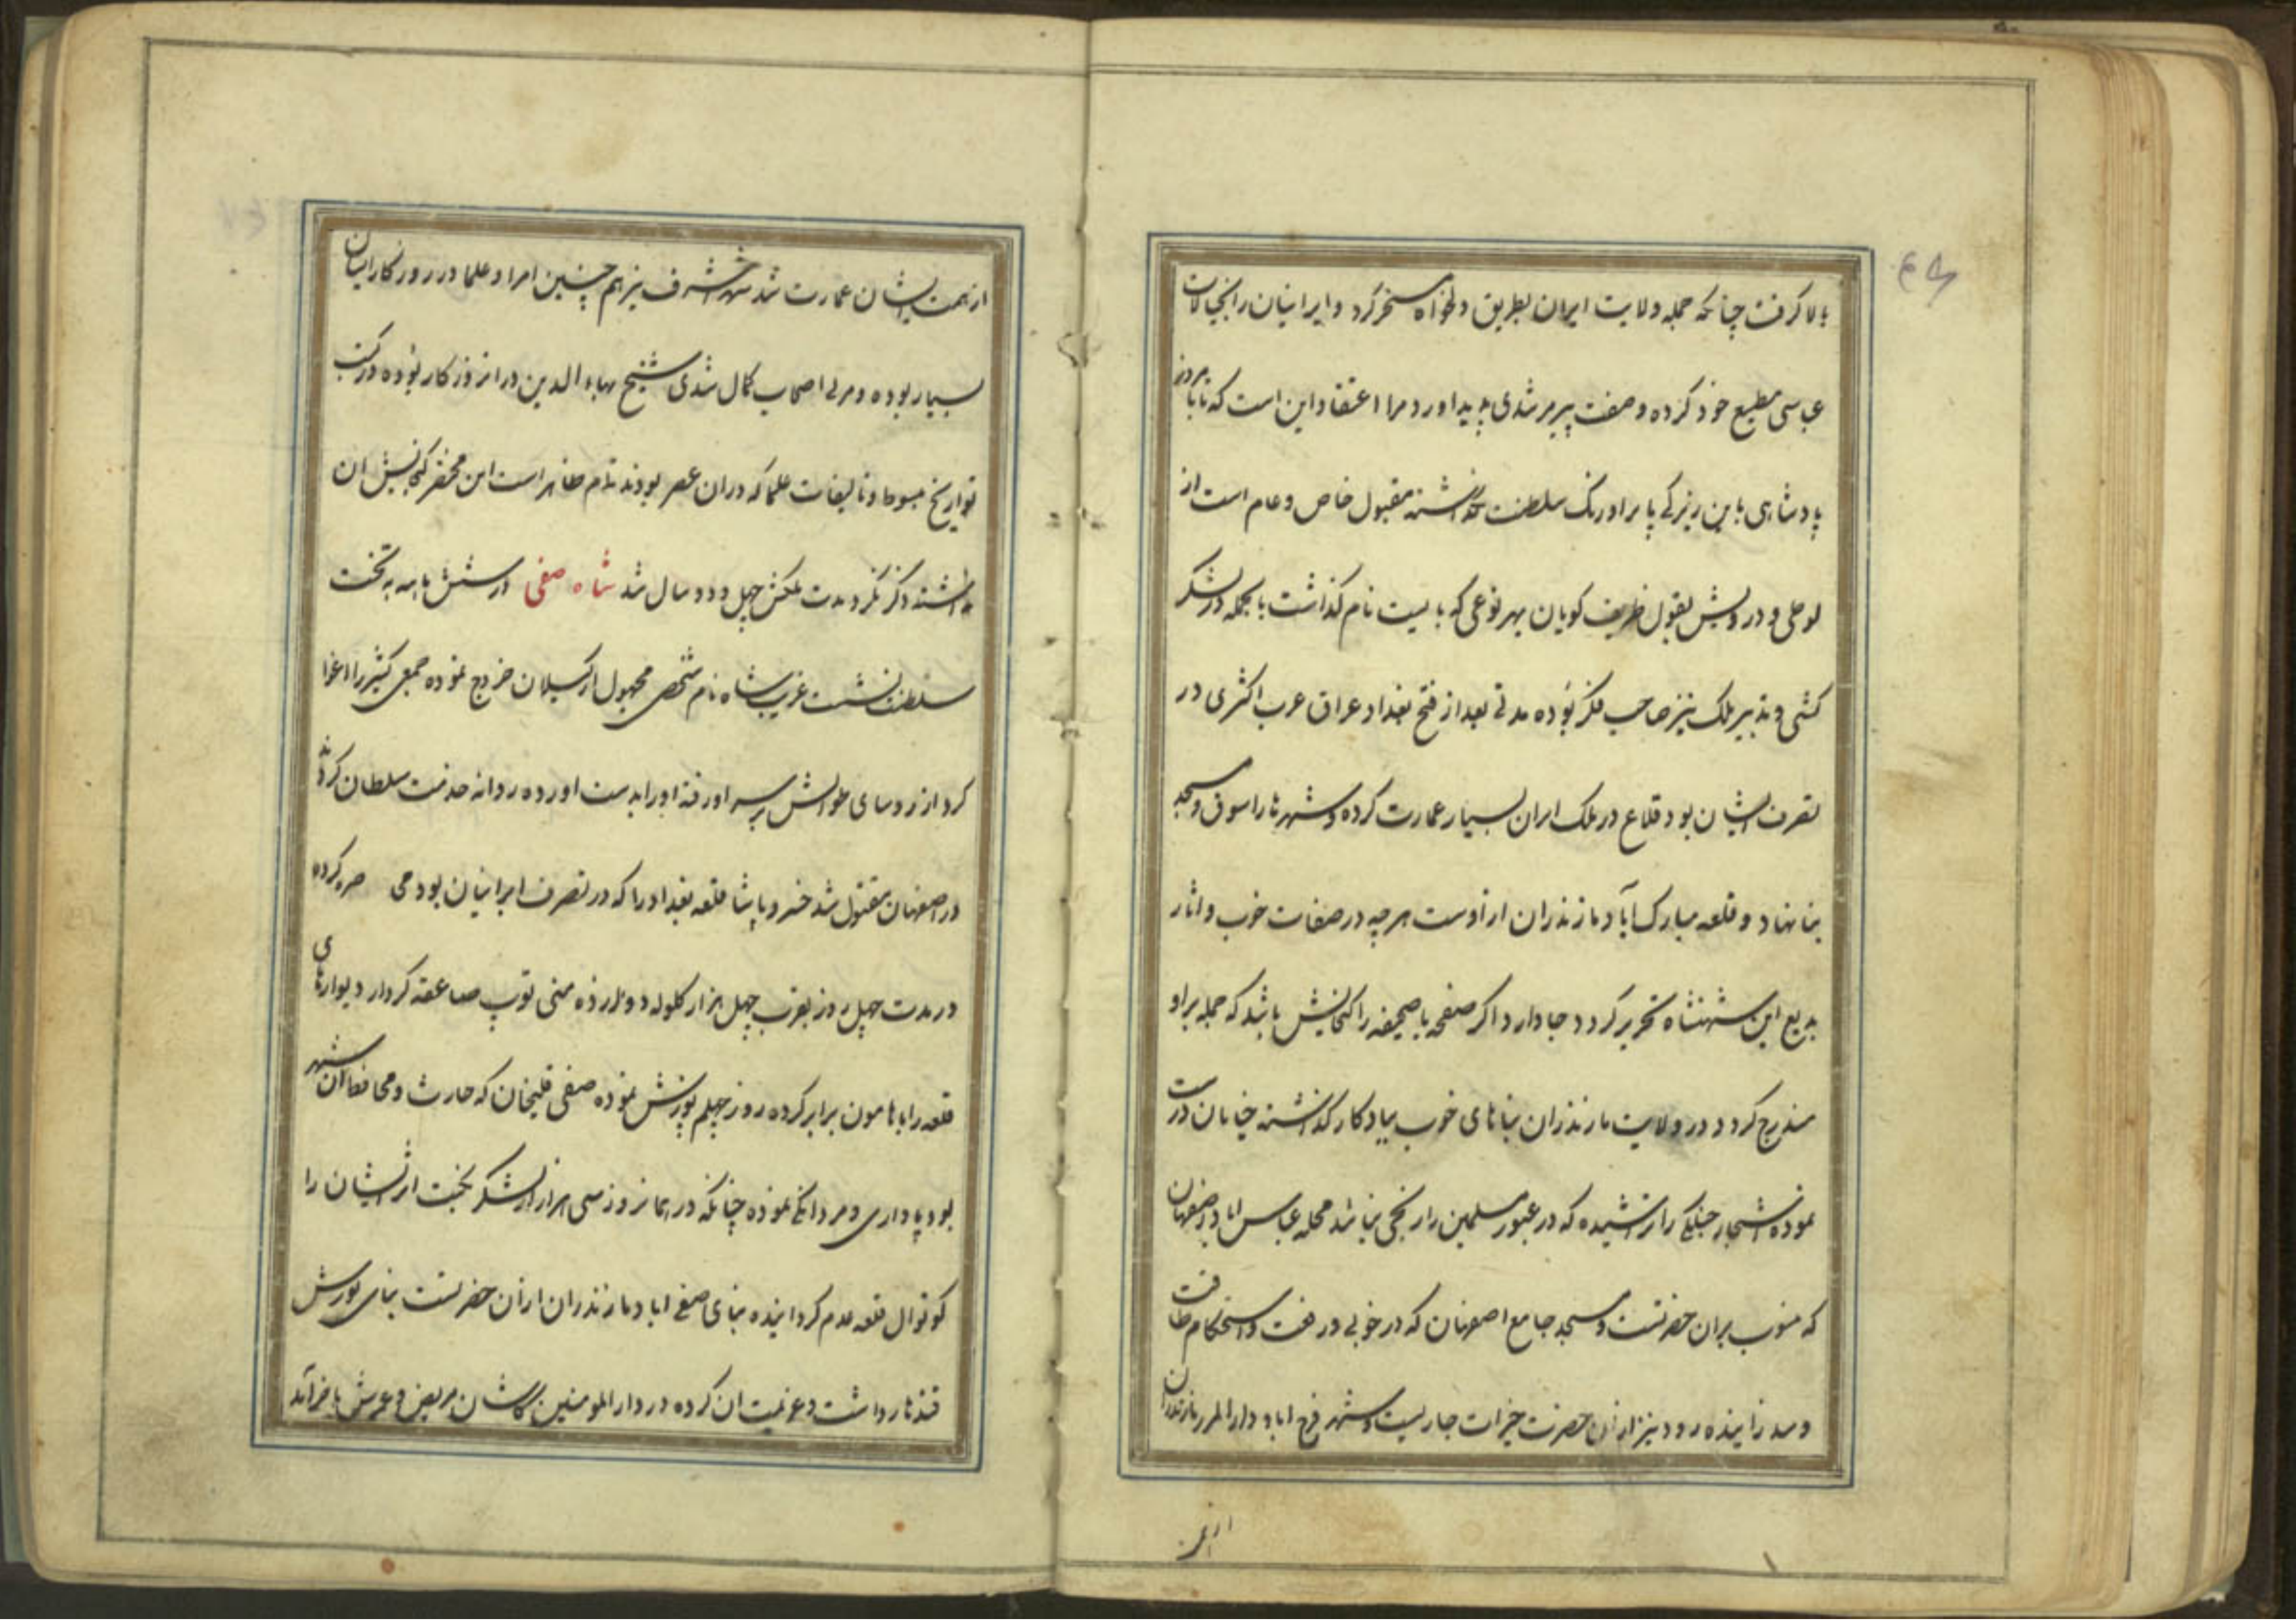 بالا گرفت چنانکه جمله ولایت ایران بطریق دلخواه مسخر کرد و ایرانیان را بخیالات
عباسی مطیع خود کرده و صفت پیر مرشدی پدید اورد مرا اعتقاد این است که تا بامروز
پادشاهی باین زیرکی پا بر اورنک سلطنت نگذاشته مقبول خاص و عام است از
لوطی و درویش بقول ظریف کویان بهر نوعی که بایست نام گذاشت بالجمله در لشکر
کشی و تدبیر ملک نیز صاحب فکر بوده مدتی بعد از فتح بغداد عراق عرب اکثری در
تصرف ایشان بود قلاع در ملک ایران بسیار عمارت کرده و شهرها را سوق و مسجد
بنا نهاد و قلعه مبارک آباد مازندران از اوست هر چه در صفات خوب و اثار
بدیع این شهنشاه تحریر کردد جا دارد اکر صفحه یا صحیفه را کنجایش باشد که جمله بر او
مندرج کردد در ولایت مازندران بناهای خوب بیادکار گذاشته خیابان درست
نموده اشجار جنگلی را تراشیده که در عبور مسلمین را رنجی نباشد محله عباس اباد در صفهان
که منسوب بران حضرتست و مسجد جامع اصفهان که در خوبی و رفعت و استحکام طاقت
و سد زاینده رود نیز از ان حضرت خیرات جاریست و شهر فرح اباد دار المرز مازندران
از هم
از همت ایشان عمارت شد شهر اشرف نیز هم چنین امرا و علما در روزکار ایشان
بسیار بوده و مربی اصحاب کمال شدی شیخ بهاء الدین در انروزکار بوده در کتب
تواریخ مبسوط و تالیفات علما که دران عصر بودند تمام ظاهر است این مختصر کنجایش ان
نداشته ذکر نکرد مدت ملکش چهل و دو سال شد شاه صفی در سنش بامه به تخت
سلطنت نشست غریب شاه نام شخصی مجهول از کیلان خروج نموده جمعی کثیر را اغوا
کرد از روسای عوانش بر سر او رفته او را بدست اورده روانه خدمت سلطان کردند
در اصفهان مقتول شد خسرو پاشا قلعه بغداد را که در تصرف ایرانیان بود محاصره کرده
در مدت چهل روز بقرب چهل هزار کلوله دوازده منی توپ صاعقه کردار دیوارهای
قلعه را با هامون برابر کرده روز چهلم یورش نموده صفی قلیخان که حارث و محافظ ان شهر
بود پاداری و مردانکی نموده چنانکه در همانروز سی هزار از لشکر نخبت اثر ایشان را
کوتوال قلعه عدم کردانیده بنای صفی اباد مازندران از ان حضرتست بنای یورش
قندهار داشت و عزیمت ان کرده در دار المومنین کاشان مریض و عمرش باخر آمد